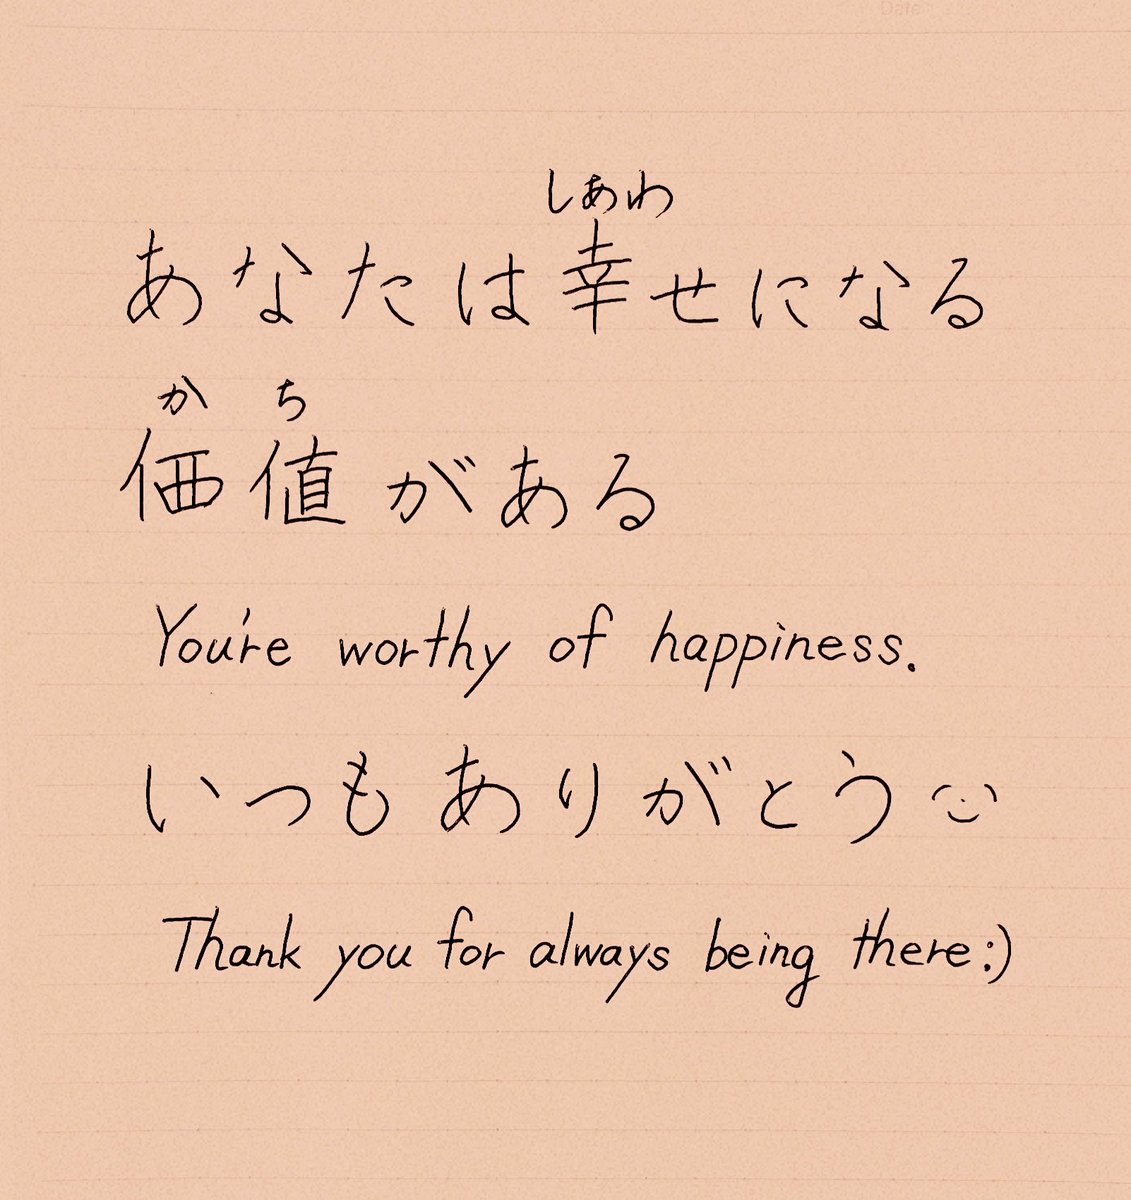 Date
しあわ
あなたは幸せになる
かち
価値がある
You're worthy of happiness.
いつもありがとう
Thank you for always being there:)